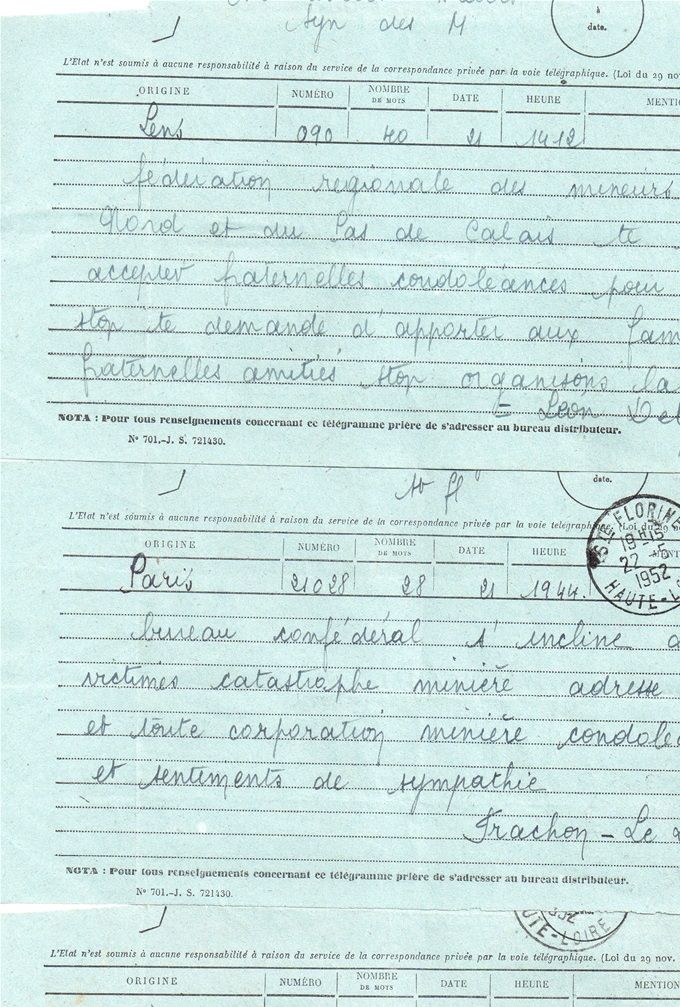 Syn des M
à
date.
L'Etat n'est soumis à aucune responsabilité à raison du service de la correspondance privée par la voie télégraphique. (Loi du 29 nov
ORIGINE NUMÉRO NOMBRE DE MOTS DATE HEURE MENTI
Lens 090 40 21 1412
fédération regionale des mineurs
Nord et du Pas de Calais te
accepter fraternelles condoléances pour
stop te demande d'apporter aux fam
fraternelles amitiés stop organisons la
= Léon Del
NOTA : Pour tous renseignements concernant ce télégramme prière de s'adresser au bureau distributeur.
N° 701.-J. S. 721430.
date.
L'Etat n'est soumis à aucune responsabilité à raison du service de la correspondance privée par la voie télégraphique. (Loi du 29
ORIGINE NUMÉRO NOMBRE DE MOTS DATE HEURE MENT
STE FLORINE
19 H 15
22 - 5
1952
HAUTE-L
Paris 21028 28 21 1944.
bureau confédéral s'incline
victimes catastrophe minière adresse
et toute corporation minière condolé
et sentiments de sympathie
Frachon - Le
NOTA : Pour tous renseignements concernant ce télégramme prière de s'adresser au bureau distributeur.
N° 701.-J. S. 721430.
952
UTE-LOIRE
L'Etat n'est soumis à aucune responsabilité à raison du service de la correspondance privée par la voie télégraphique. (Loi du 29 nov.
ORIGINE NUMÉRO NOMBRE DE MOTS DATE HEURE MENTION